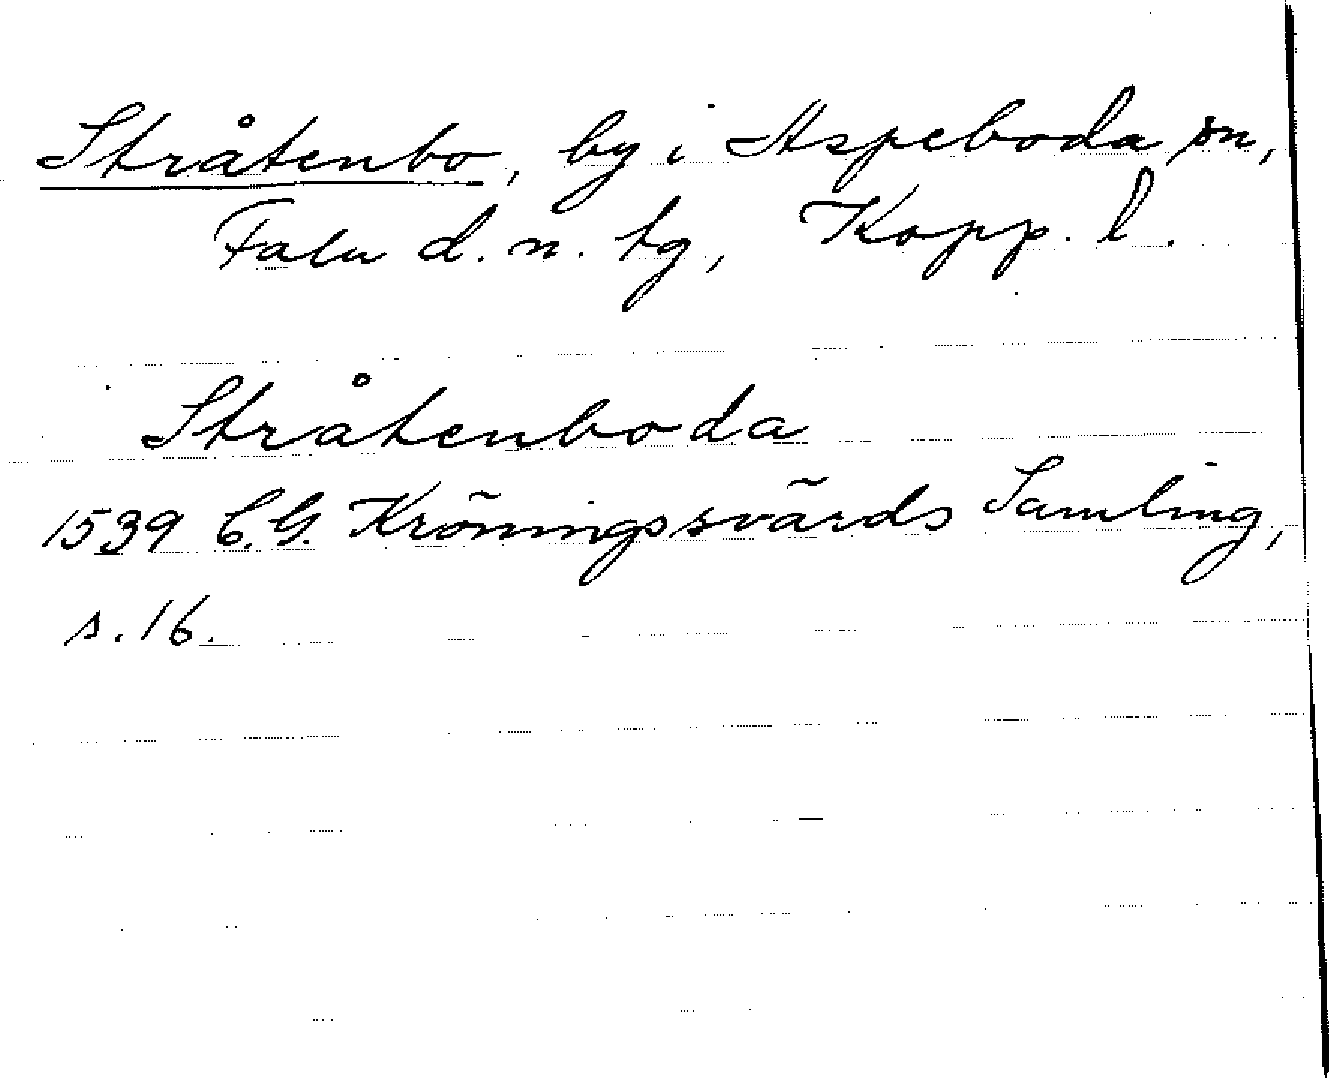 Stråtenbo, by i Aspeboda sn,
Falu d. n. tg, Kopp. l.
Stråtenboda
1539 C.G. Kröningssvärds Samling,
s. 16.